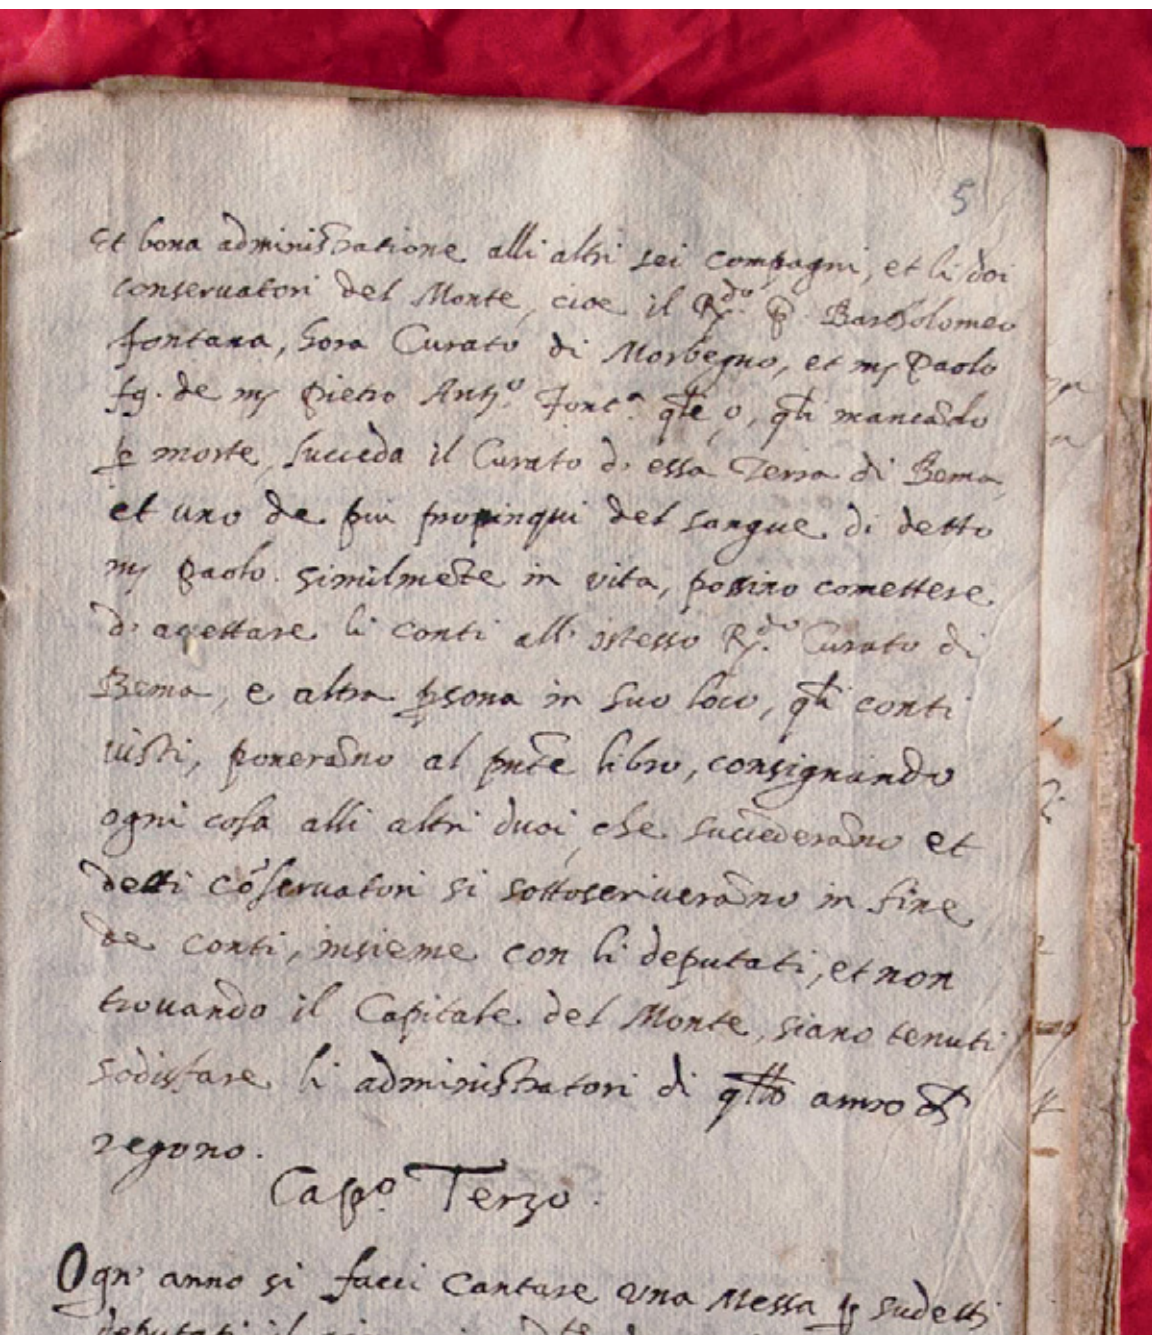 5
et bona administratione alli altri sei compagni, et li doi
conservatori del Monte, cioe il R.do P. Bartholomeo
fontana, hora Curato di Morbegno, et m. Paolo
fg. de m. Pietro Ant.o Font.a q̃li mancãdo
p morte, succeda il Curato d. essa Terra di Bema,
et uno de piu propinqui del sangue di detto
m. Paolo. similmẽte in vita, possino comettere
d. acettare li conti all' istesso R.do Curato di
Bema, e altra psona in suo loco, q̃li conti
visti, ponerãno al pñte libro, consignando
ogni cosa alli altri duoi, che succederãno et
detti cõservatori si sottoscriverãno in fine
de conti, insieme con li deputati, et non
trovando il Capitale del Monte, siano tenuti
sodisfare li administratori di anno
regono.
Cap.o Terzo.
Ogn' anno si facci Cantare una Messa p sudetti
deputati